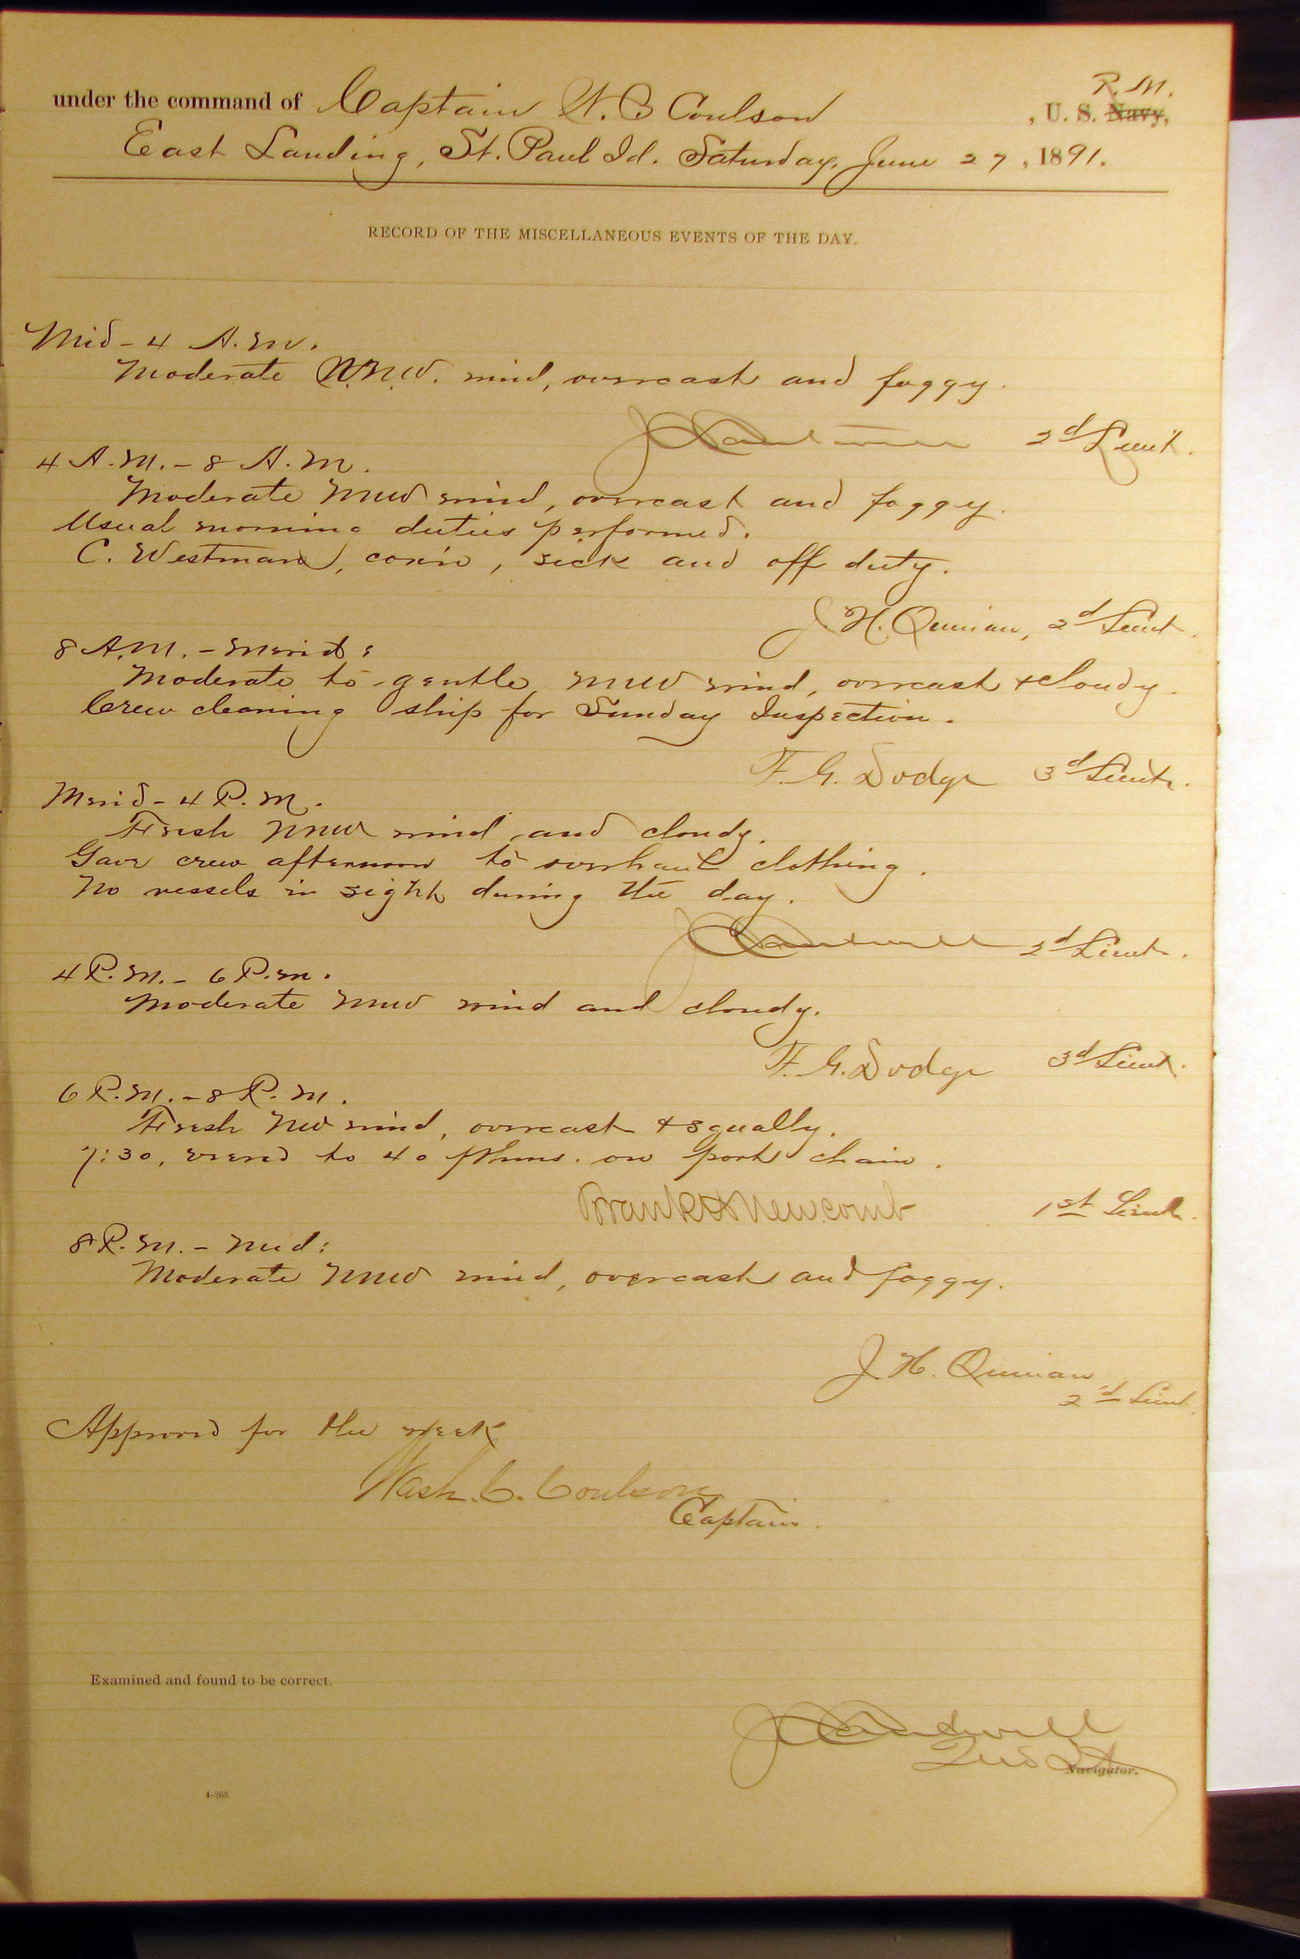 under the command of Captain W. C Coulson, U. S. Navy, R. M.
East Landing, St. Paul Id. Saturday, June 27, 1891.
RECORD OF THE MISCELLANEOUS EVENTS OF THE DAY.
Mid - 4 A.M.
Moderate N.N.W. wind, overcast and foggy.
2d Lieut.
4 A.M. - 8 A.M.
Moderate NNW wind, overcast and foggy.
Usual morning duties performed.
C. Westman, cox'n, sick and off duty.
J. H. Quinan, 2d Lieut.
8 A.M. - Merid:
Moderate to gentle NNW wind, overcast & cloudy.
Crew cleaning ship for Sunday Inspection.
F. G. Dodge 3d Lieut.
Merid - 4 P.M.
Fresh NNW wind and cloudy.
Gave crew afternoon to overhaul clothing.
No vessels in sight during the day.
J C Cantwell 2d Lieut.
4 P.M. - 6 P.M.
Moderate NNW wind and cloudy.
F. G. Dodge 3d Lieut.
6 P.M. - 8 P.M.
Fresh NW wind, overcast & squally.
7:30, veered to 40 fthms. on port chain.
Frank H Newcomb 1st Lieut.
8 P.M. - Mid:
Moderate NNW wind, overcast and foggy.
J. H. Quinan
2d Lieut.
Approved for the week
Wash. C. Coulson
Captain.
Examined and found to be correct.
J C Cantwell
2nd Lt
Navigator.
4-265